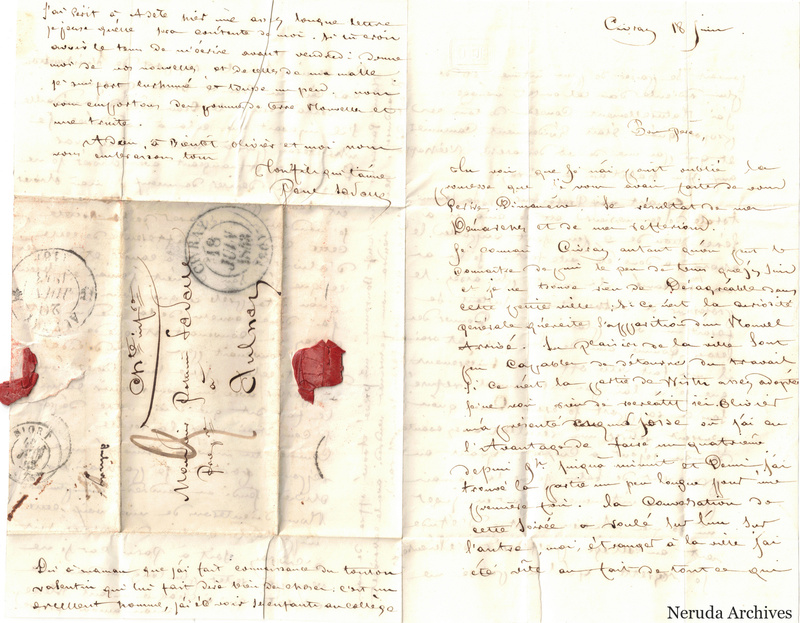 Civray 18 Juin.
Bon père,
Tu vois que je n'ai point oublié la
promesse que je vous avais faite de vous
Dimanche. Le résultat de mes
Démarches et de mes réflexions.
Je connais Civray autant qu'on peut le
connaître depuis le peu de tems que j'y suis
et je ne trouve rien de Désagréable dans
cette petite ville, si ce n'est la curiosité
générale l'apparition d'un Nouvel
Arrivé. Les plaisirs de la ville sont
peu capables de détourner du travail
si ce n'est la partie de Wisth assez
je ne vois rien de récréatif ici. Olivier
m'a présenté où j'ai eu
l'Avantage de faire un quatrième
depuis 7h jusqu'à minuit et Demi, j'ai
trouvé la partie un peu longue pour une
première fois. la Conversation de
cette Soirée a roulé sur l'un sur
l'autre, moi, étranger à la ville j'ai
été vite au fait de tout ce qui
J'ai écrit à hier une assez longue lettre
je pense qu'elle sera contente de moi. Si tu avais
le tems de m'écrire avant vendredi donne
moi de vos nouvelles, et de celles de ma malle
je suis fort enrhumé et tousse un peu. nous
vous emportons des pommes de terre Nouvelles et
une truite.
Adieu, à Bientôt olivier et moi nous
vous embrassons tous
Ton fils qui t'aime
Paul
CIVRAY
18
JUIN
Monsieur
à
Aulnay
NIORT
Dis à maman que j'ai fait connaissance du tonton
valentin qui lui fait dire bien des choses, c'est un
excellent homme, j'ai été voir ses enfants au collège
Neruda Archives